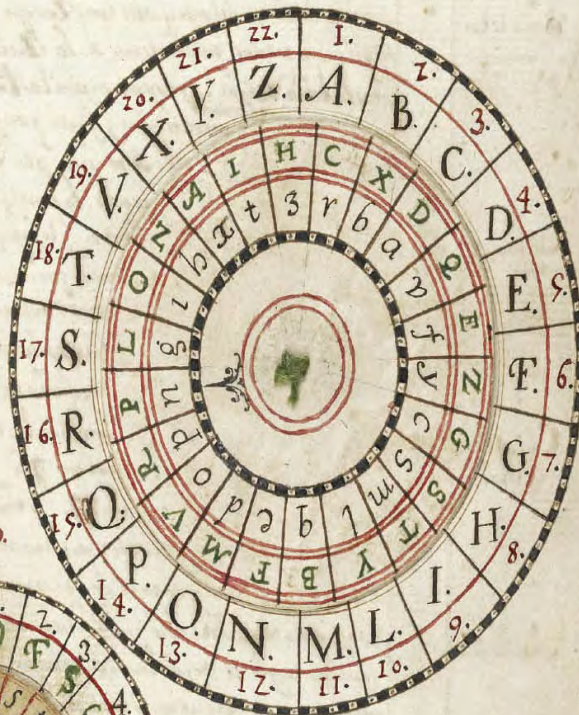 1. 2. 3. 4. 5. 6. 7. 8. 9. 10. 11. 12. 13. 14. 15. 16. 17. 18. 19. 20. 21. 22.
A. B. C. D. E. F. G. H. I. L. M. N. O. P. Q. R. S. T. V. X. Y. Z.
C X D Q E Z G S T Y B F M V R P L O Z A I H
r b a f y c s m l q e d o p n g ı h x t 3
2. 3. 4.
F S